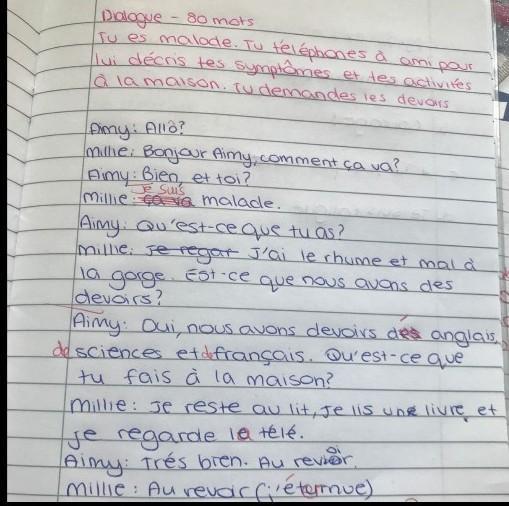 Dialogue - 80 mots
Tu es malade. Tu téléphones à ami pour
lui décris tes symptômes et tes activités
à la maison. Tu demandes les devoirs
Aimy: Allô?
Millie: Bonjour Aimy, comment ça va?
Aimy: Bien, et toi?
Millie: Je suis malade.
Aimy: Qu'est-ce que tu as?
Millie: Je regar J'ai le rhume et mal à
la gorge. Est-ce que nous avons des
devoirs?
Aimy: Oui, nous avons devoirs des anglais,
de sciences et de français. Qu'est-ce que
tu fais à la maison?
Millie: Je reste au lit, Je lis une livre et
je regarde la télé.
Aimy: Trés bien. Au revoir.
Millie: Au revoir (j'éternue)